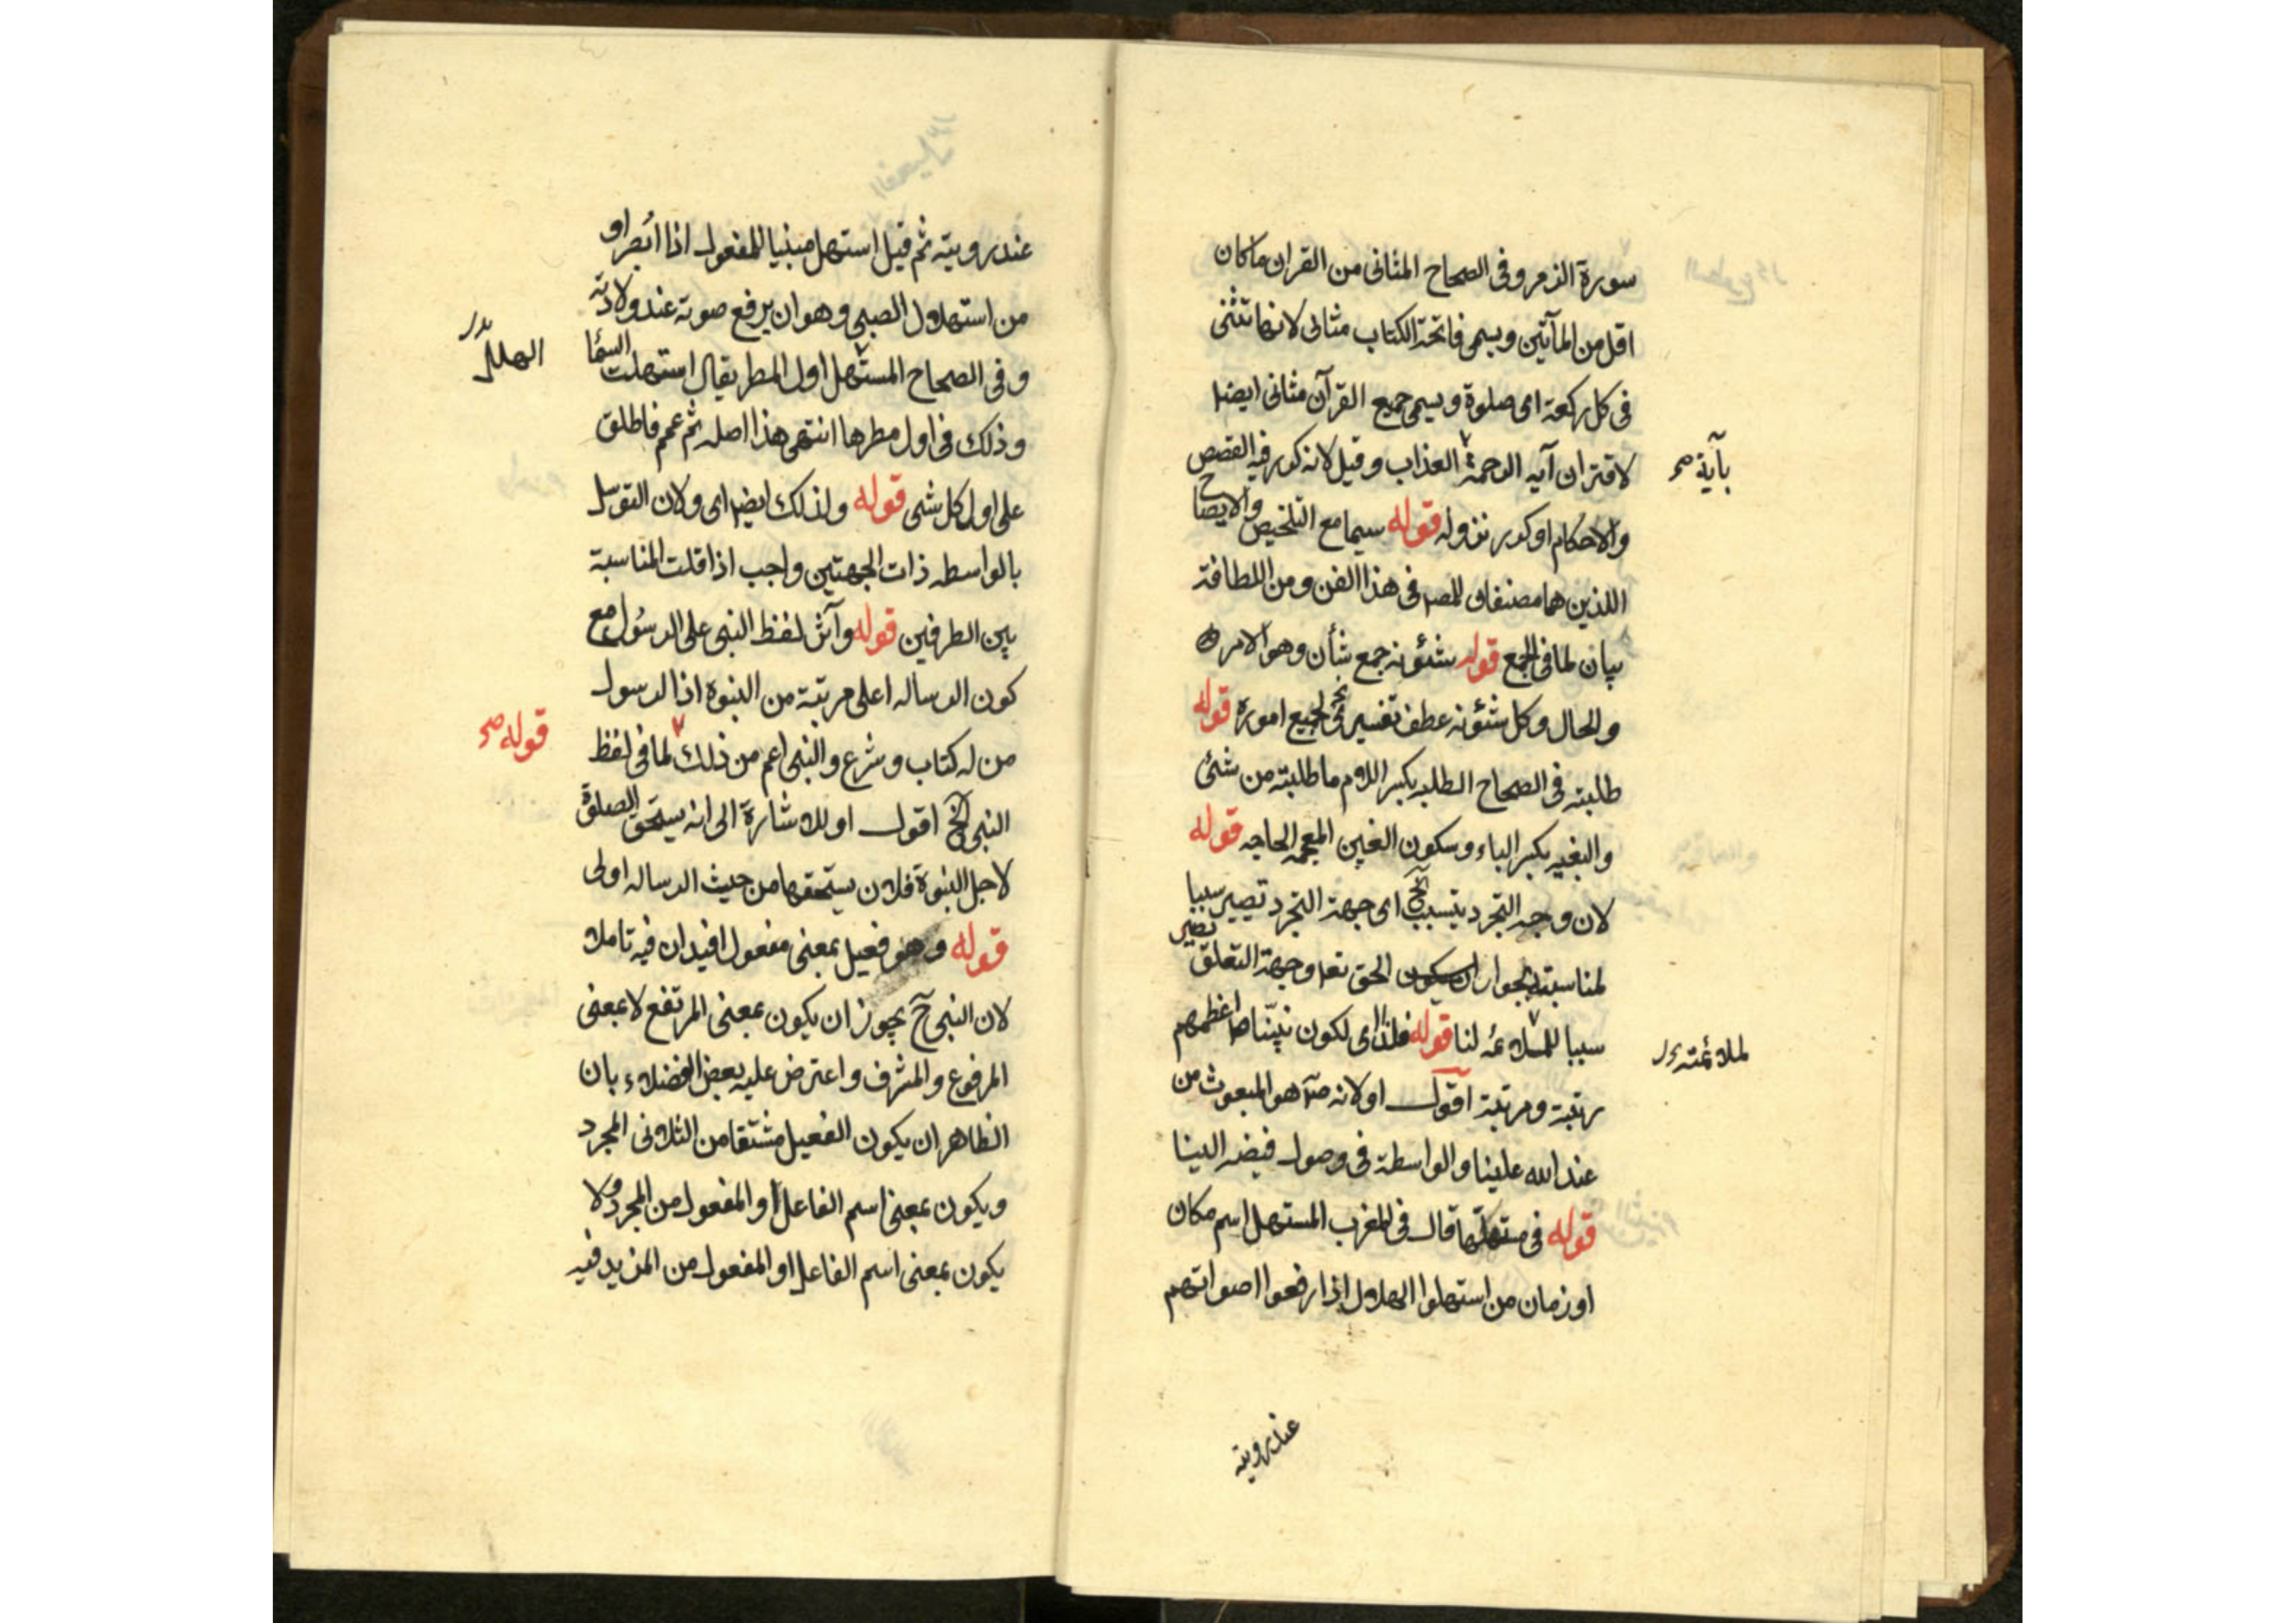 سورة الزمر وفى الصحاح المثانى من القران ماكان
اقل من المآئتين ويسمى فاتحة الكتاب مثانى لانها تثنى
فى كل ركعة اى صلوة ويسمى جميع القرآن مثانى ايضا
لاقتران آيه الرحمة العذاب وقيل لانه كرر فيه القصص
بآية صح
والاحكام او كرر نزوله قوله سيما مع التلخيص والايضاح
اللذين هما مصنفان للمص فى هذا الفن ومن اللطافة
بيان لما فى الجمع قوله شئونه جمع شأن وهو الامر
والحال وكل شئونه عطف تفسيرى لجميع اموره قوله
طلبته فى الصحاح الطلبه بكسر اللام ما طلبته من شئ
والبغيه بكسر الباء وسكون الغين المعجمه الحاجه قوله
لان وجه التجرد يتسبب الخ اى جهة التجرد تصير سببا
لمناسبته بجوار الحق تعا وجهة التعلق تصير
سببا للملائمة لنا قوله فلذا اى لكون نبيّنا ص اعظمهم
لملائمته بدل
رتبة ومرتبة اقول اولانه ص هو المبعوث من
عند الله علينا والواسطة فى وصول فيضه الينا
قوله فى مستهلّها قال فى المغرب المستهل اسم مكان
او زمان من استهلوا الهلال اذا رفعوا اصواتهم
عند رويته
عند رويته ثم قيل استهل مبنيا للمفعول اذا ابُصر او
من استهلال الصبى وهو ان يرفع صوته عند ولادته
الهلال بدل
وفى الصحاح المستهل اول المطر يقال استهلت السمُا
وذلك فى اول مطرها انتهى هذا اصله ثم عمم فاطلق
على اول كل شى قوله ولذلك ايضا اى ولان التوسل
بالواسطه ذات الجهتين واجب اذا قلت المناسبة
بين الطرفين قوله وآثر لفظ النبى على الرسُول مع
كون الرساله اعلى مرتبة من النبوه اذ الرسول
من له كتاب وشرع والنبى اعم من ذلك لما فى لفظ
قوله صح
النبى الخ اقول اولا شارة الى انه يستحق الصلوة
لاجل النبوة فلان يستحقها من حيث الرساله اولى
قوله وهو فعيل بمعنى مفعول افيد ان فيه تاملا
لان النبى ح يجوز ان يكون بمعنى المرتفع لا بمعنى
المرفوع والمشرف واعترض عليه بعض الفضلاء بان
الظاهر ان يكون الفعيل مشتقا من الثلاثى المجرد
ويكون بمعنى اسم الفاعل او المفعول من المجرد ولا
يكون بمعنى اسم الفاعل او المفعول من المزيد فيه